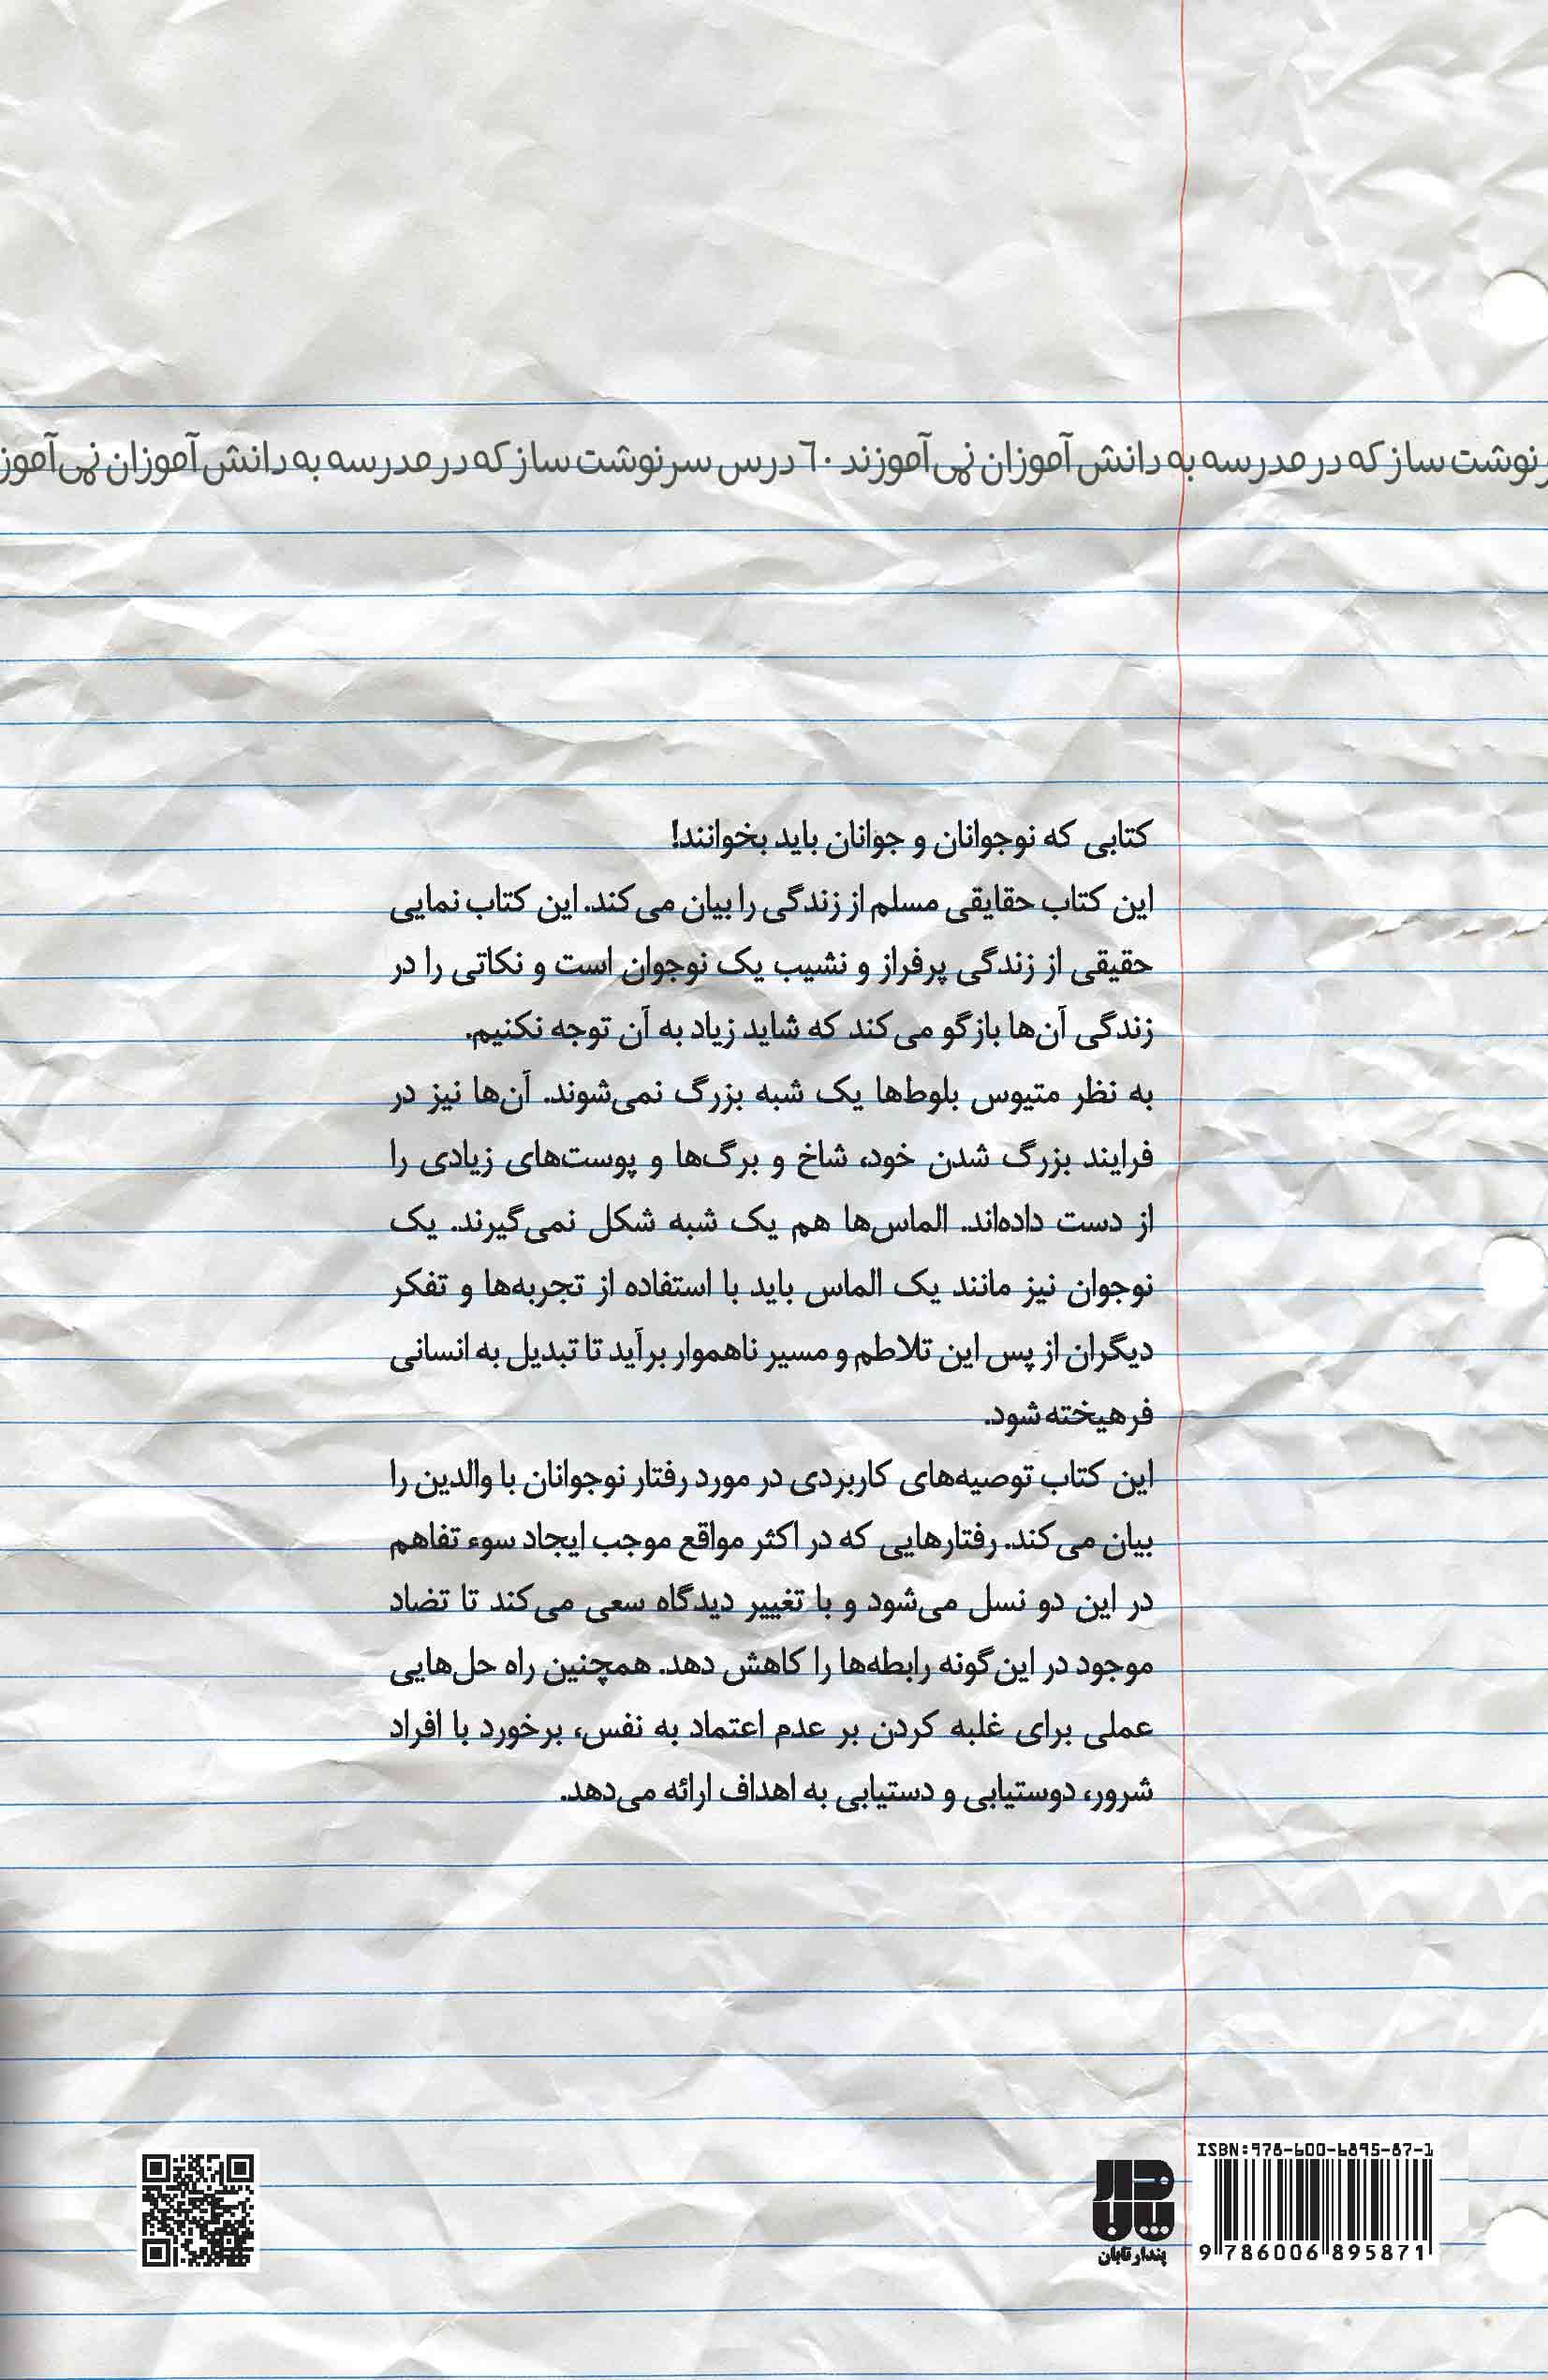 نوشت ساز که در مدرسه به دانش آموزان نمی‌آموزند ۶۰ درس سرنوشت ساز که در مدرسه به دانش آموزان نمی‌آموز
کتابی که نوجوانان و جوانان باید بخوانند!
این کتاب حقایقی مسلم از زندگی را بیان می‌کند. این کتاب نمایی
حقیقی از زندگی پرفراز و نشیب یک نوجوان است و نکاتی را در
زندگی آن‌ها بازگو می‌کند که شاید زیاد به آن توجه نکنیم.
به نظر متیوس بلوط‌ها یک شبه بزرگ نمی‌شوند. آن‌ها نیز در
فرایند بزرگ شدن خود، شاخ و برگ‌ها و پوست‌های زیادی را
از دست داده‌اند. الماس‌ها هم یک شبه شکل نمی‌گیرند. یک
نوجوان نیز مانند یک الماس باید با استفاده از تجربه‌ها و تفکر
دیگران از پس این تلاطم و مسیر ناهموار برآید تا تبدیل به انسانی
فرهیخته شود.
این کتاب توصیه‌های کاربردی در مورد رفتار نوجوانان با والدین را
بیان می‌کند. رفتارهایی که در اکثر مواقع موجب ایجاد سوء تفاهم
در این دو نسل می‌شود و با تغییر دیدگاه سعی می‌کند تا تضاد
موجود در این‌گونه رابطه‌ها را کاهش دهد. همچنین راه حل‌هایی
عملی برای غلبه کردن بر عدم اعتماد به نفس، برخورد با افراد
شرور، دوستیابی و دستیابی به اهداف ارائه می‌دهد.
ISBN:978-600-6895-87-1
پندار تابان
9 786006 895871